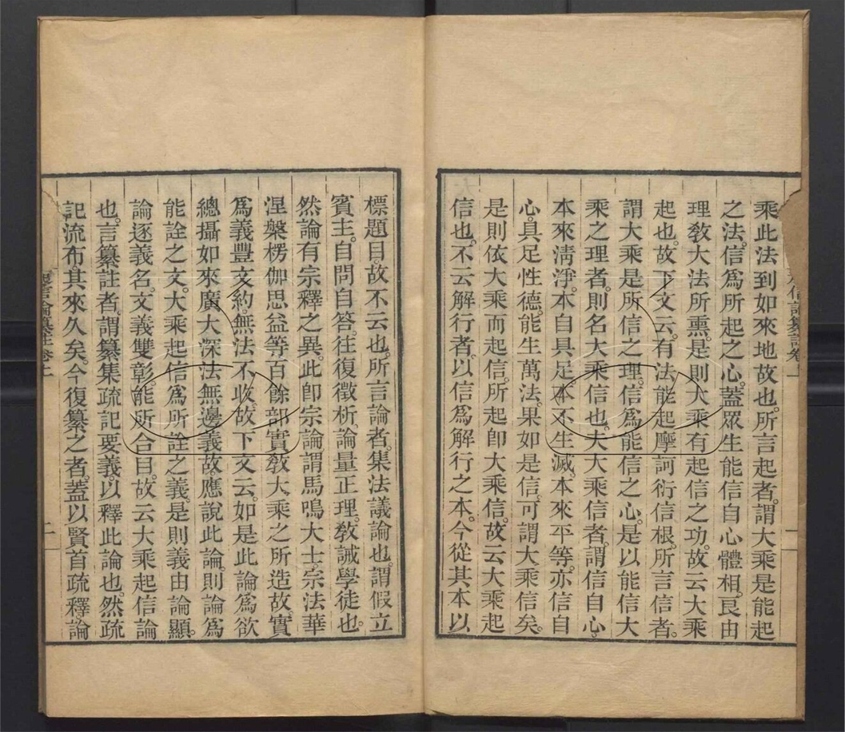 乘此法到如來地故也。所言起者。謂大乘是能起
之法。信爲所起之心。蓋眾生能信自心體相。良由
理敎大法所熏。是則大乘有起信之功。故云大乘
起也。故下文云。有法能起摩訶衍信根。所言信者。
謂大乘是所信之理。信爲能信之心。是以能信大
乘之理者。則名大乘信也。夫大乘信者。謂信自心。
本來清淨。本自具足。本不生滅。本來平等。亦信自
心。具足性德。能生萬法。果如是信。可謂大乘信矣。
是則依大乘而起信。所起卽大乘信。故云大乘起
信也。不云解行者。以信爲解行之本。今從其本以
標題目。故不云也。所言論者。集法議論也。謂假立
賓主。自問自答。往復徵析。論量正理。敎誡學徒也。
然論有宗釋之異。此卽宗論。謂馬鳴大士。宗法華
涅槃楞伽思益等百餘部實敎大乘之所造故。實
爲義豐文約。無法不收。故下文云。如是此論。爲欲
總攝如來廣大深法無邊義故。應說此論。則論爲
能詮之文。大乘起信爲所詮之義。是則義由論顯。
論逐義名。文義雙彰。能所合目。故云大乘起信論
也。言纂註者。謂纂集疏記要義以釋此論也。然疏
記流布其來久矣。今復纂之者。蓋以賢首疏釋論
起信論纂註卷上
二
信論纂註卷上
一